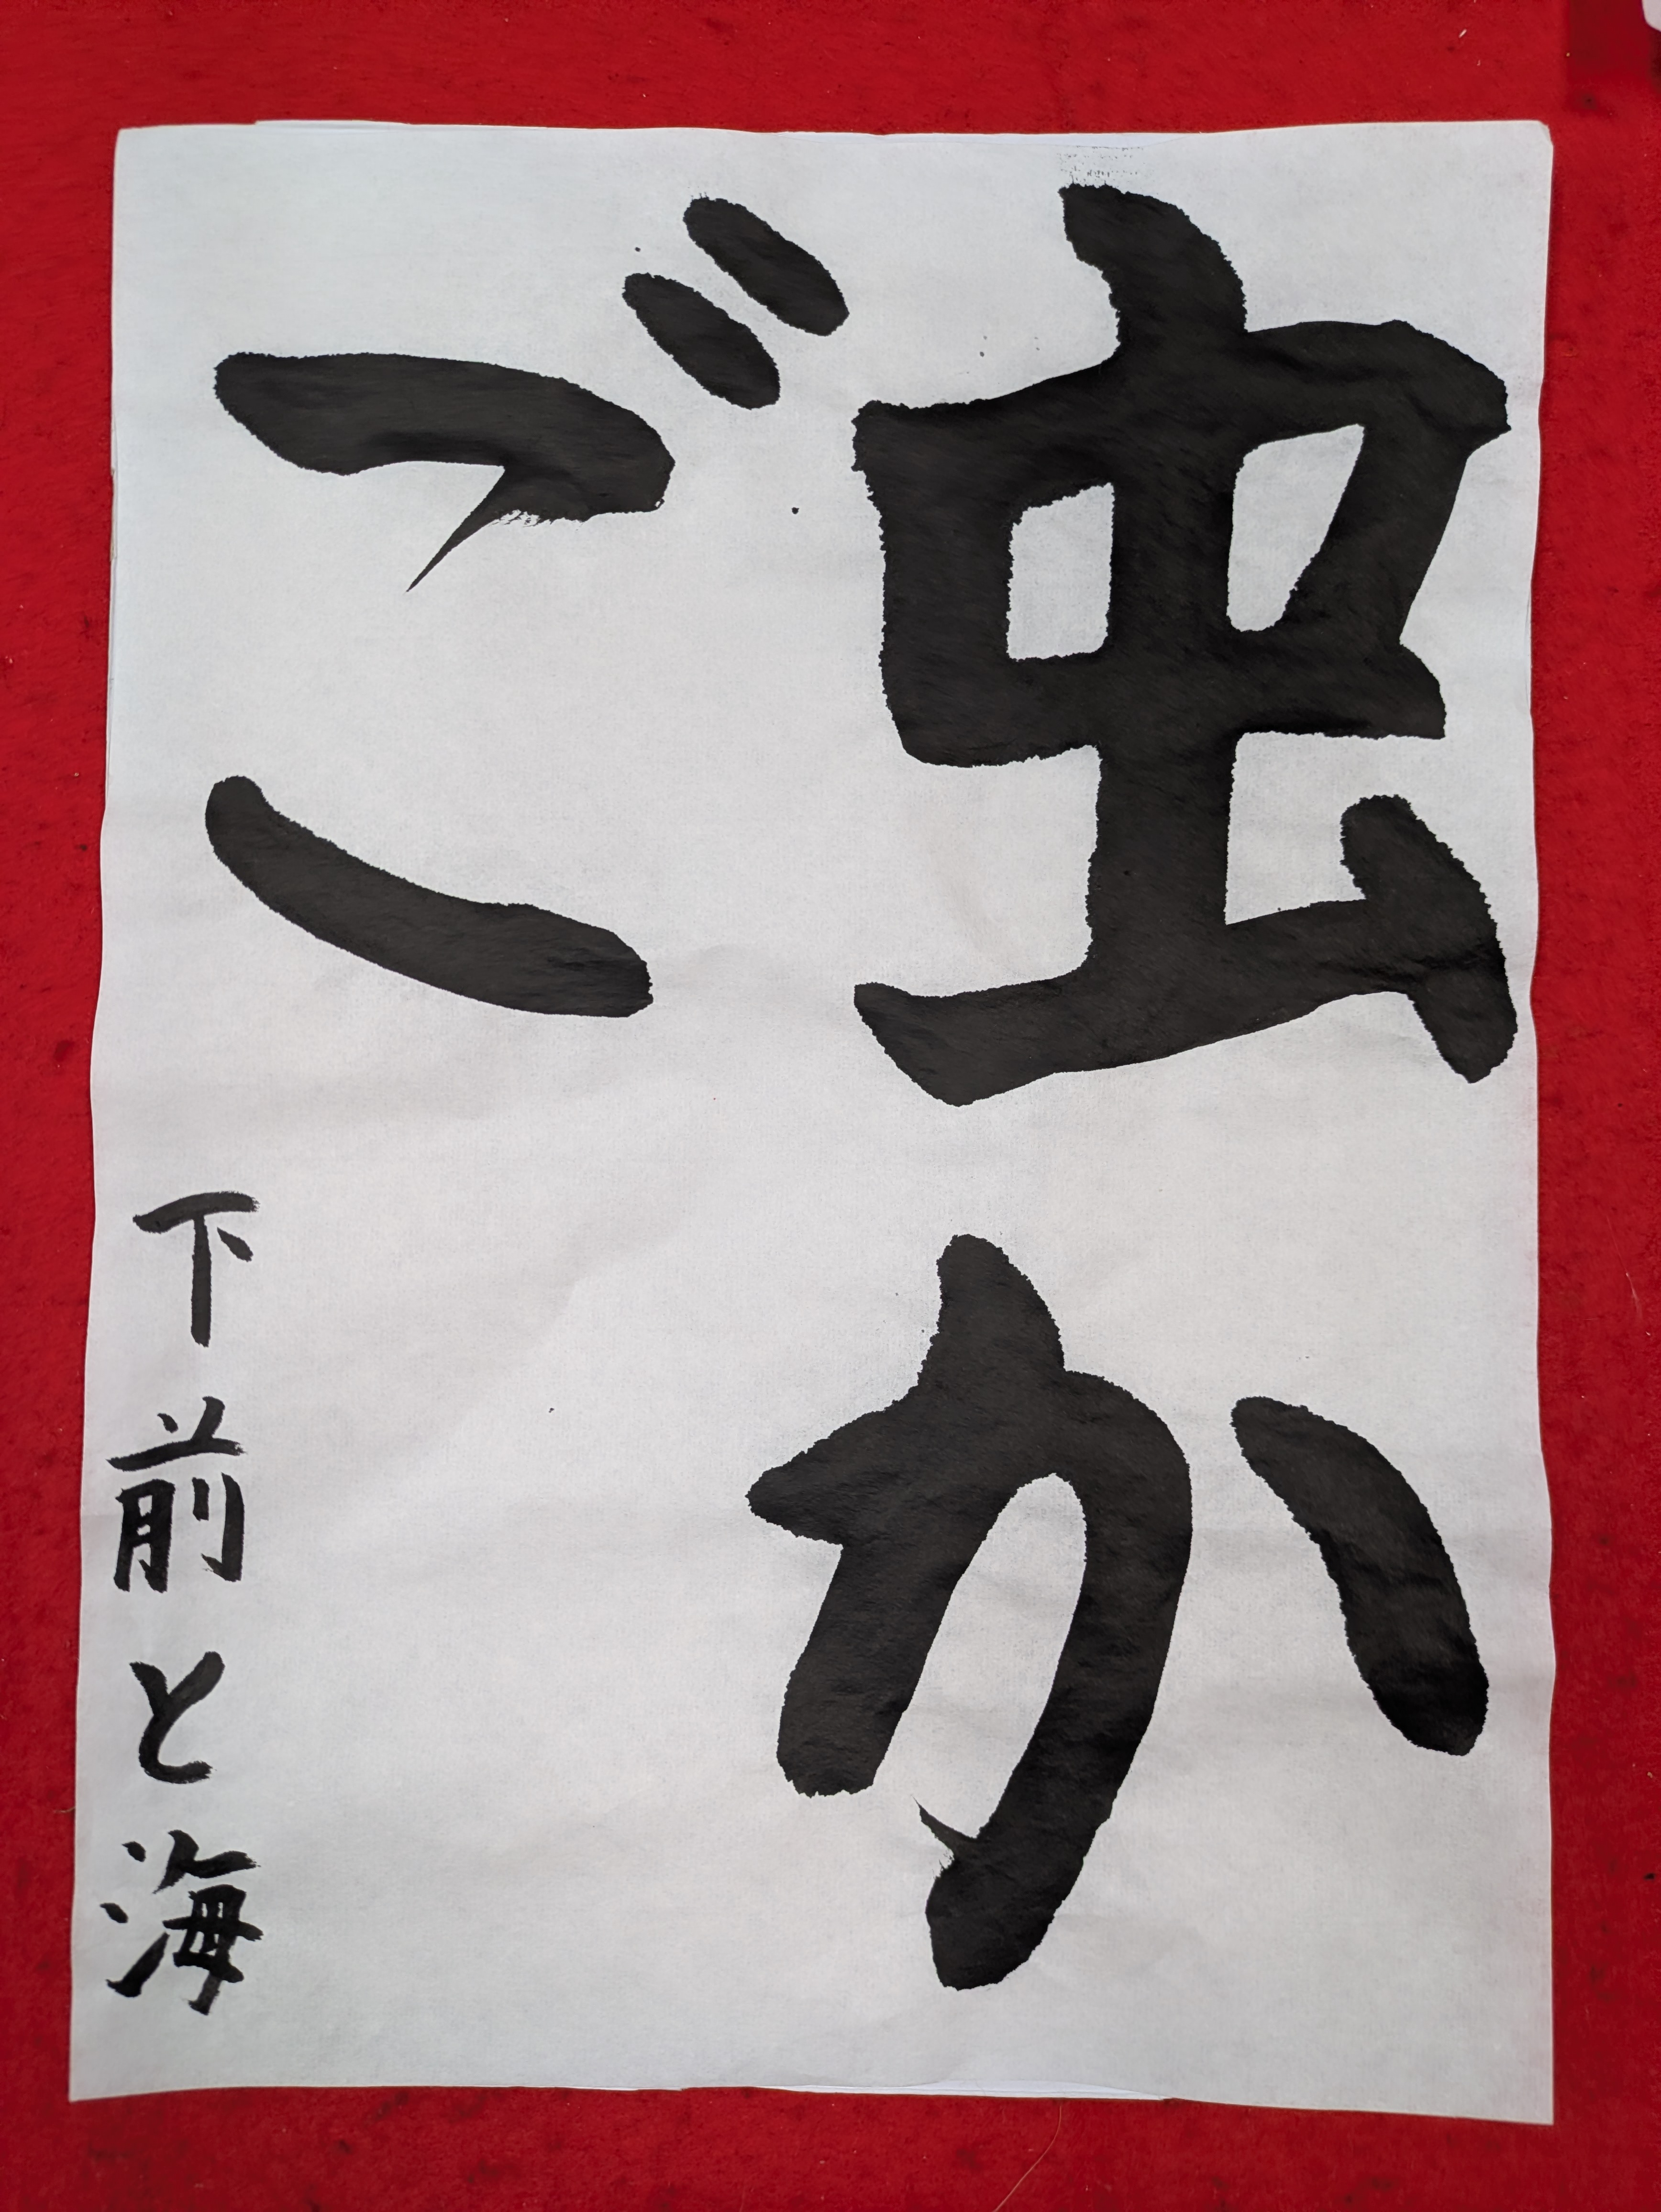 虫か
ご
下前と海